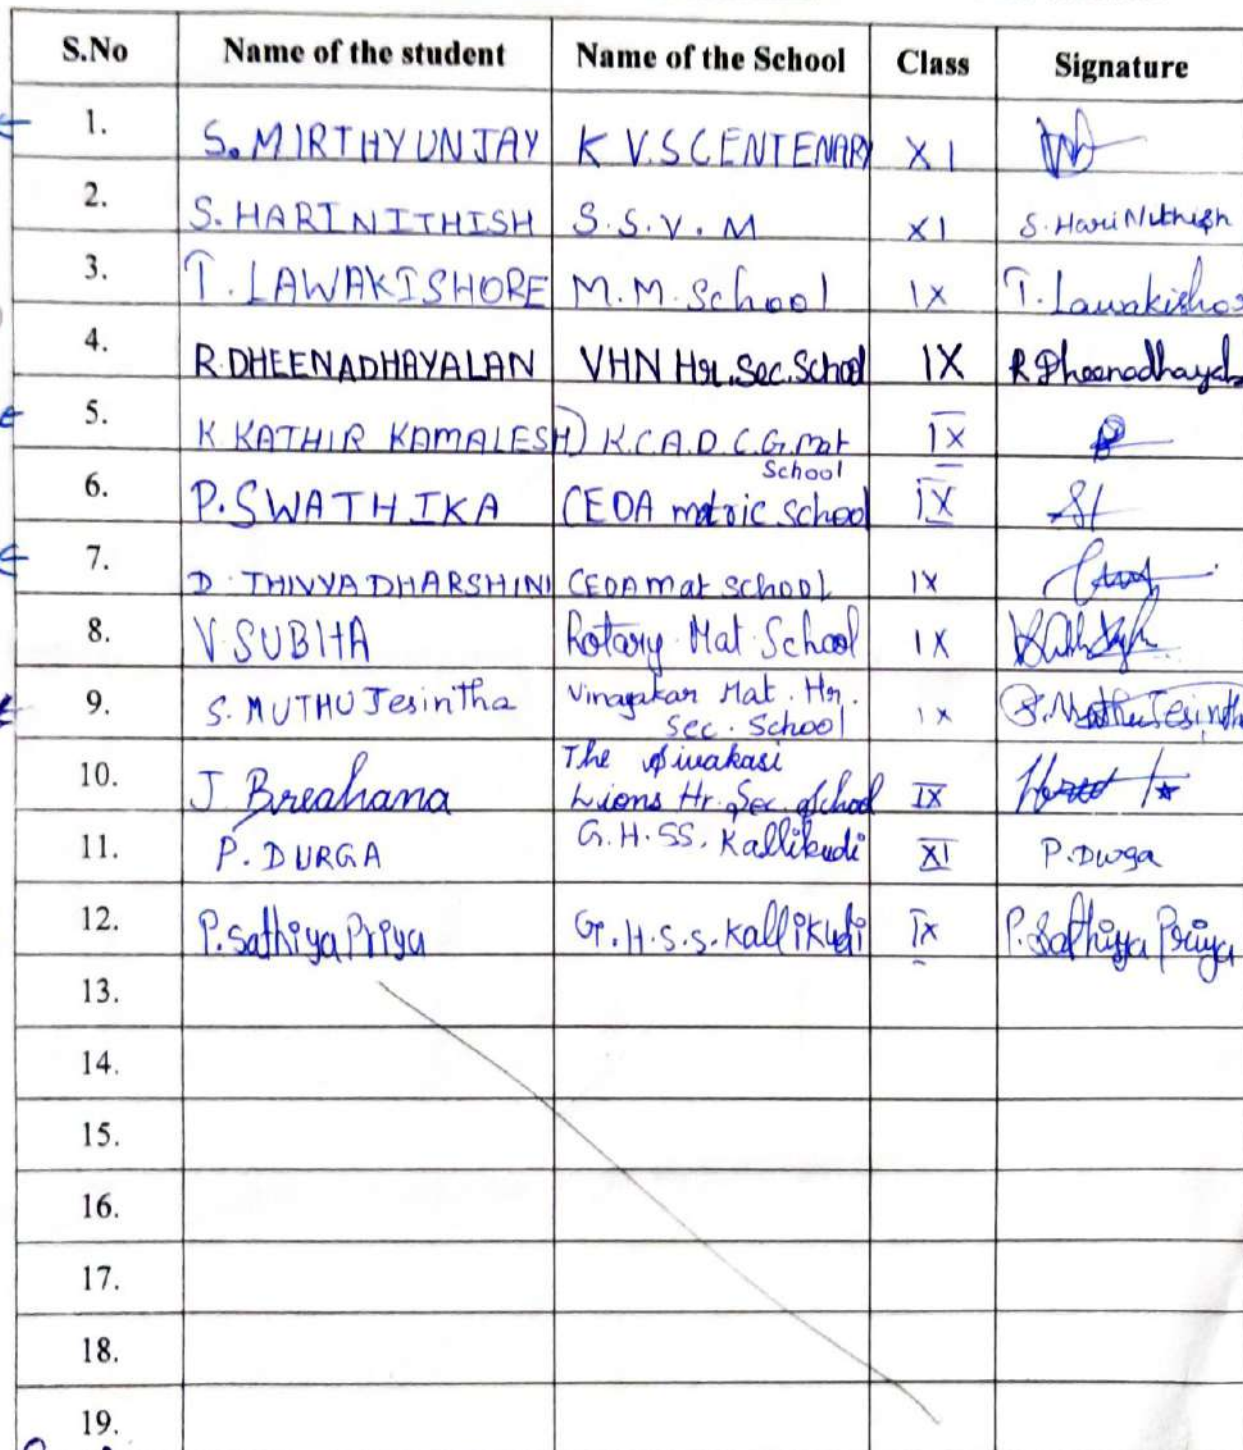 S.No Name of the student Name of the School Class Signature
1. S. MIRTHYUNJAY K V.S CENTENARY XI
2. S. HARI NITHISH S.S.V.M XI S. Hari Nithish
3. T. LAWAKISHORE M.M. School IX T. Lawakishor
4. R. DHEENADHAYALAN VHN Hr. Sec. School IX R Dheenadhayala
5. K KATHIR KAMALESH K.C.A.D.C.G. Mat IX
School
6. P. SWATHIKA CEOA matric school IX
7. D. THIVYADHARSHINI CEOA mat school IX
8. V. SUBIHA Rotary Mat School IX
9. S. MUTHU Jesintha Vinayakar Mat. Hr. IX S. Muthu Jesintha
Sec. School
The Sivakasi
10. J Breahana Lions Hr. Sec. School IX
11. P. DURGA G.H.SS. Kallikudi XI P. Durga
12. P. Sathiya Priya G.H.S.S. Kallikudi IX P. Sathiya Priya
13.
14.
15.
16.
17.
18.
19.